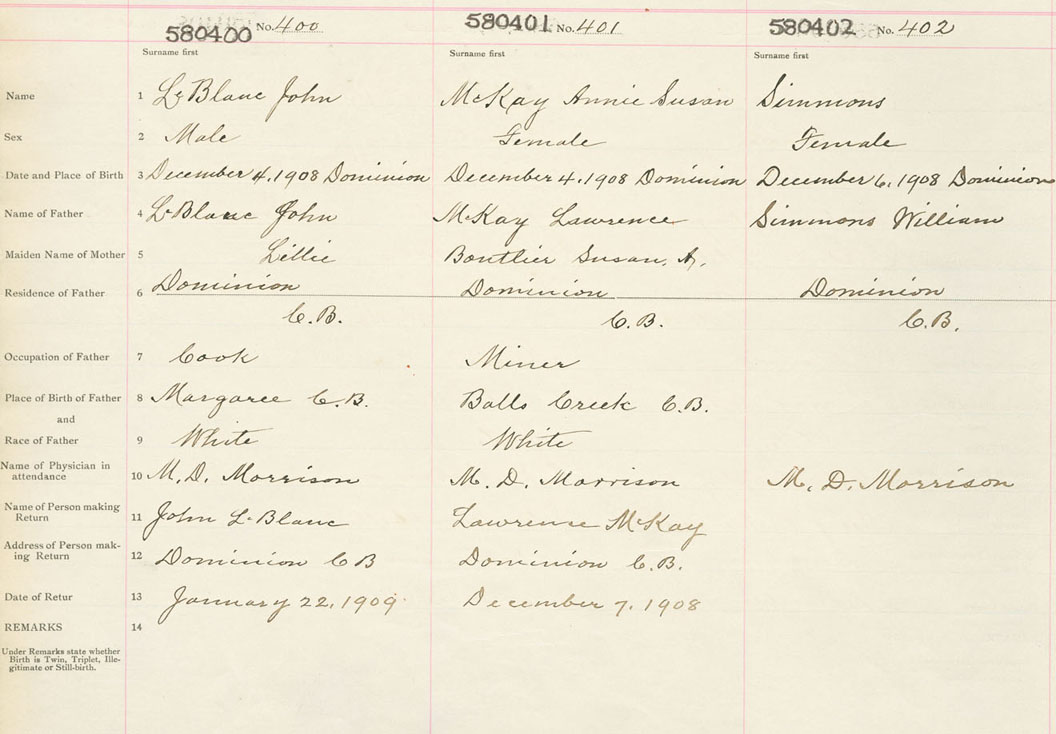 580400 No. 400 580401 No. 401 580402 No. 402
Surname first Surname first Surname first
Name 1 LeBlanc John McKay Annie Susan Simmons
Sex 2 Male Female Female
Date and Place of Birth 3 December 4, 1908 Dominion December 4, 1908 Dominion December 6, 1908 Dominion
Name of Father 4 LeBlanc John McKay Lawrence Simmons William
Maiden Name of Mother 5 Lillie Boutlier Susan. A.
Residence of Father 6 Dominion Dominion Dominion
C.B. C.B. C.B.
Occupation of Father 7 Cook Miner
Place of Birth of Father 8 Margaree C.B. Balls Creek C.B.
and
Race of Father 9 White White
Name of Physician in
attendance 10 M. D. Morrison M. D. Morrison M. D. Morrison
Name of Person making
Return 11 John LeBlanc Lawrence McKay
Address of Person mak-
ing Return 12 Dominion C B Dominion C.B.
Date of Retur 13 January 22, 1909 December 7, 1908
REMARKS 14
Under Remarks state whether
Birth is Twin, Triplet, Ille-
gitimate or Still-birth.